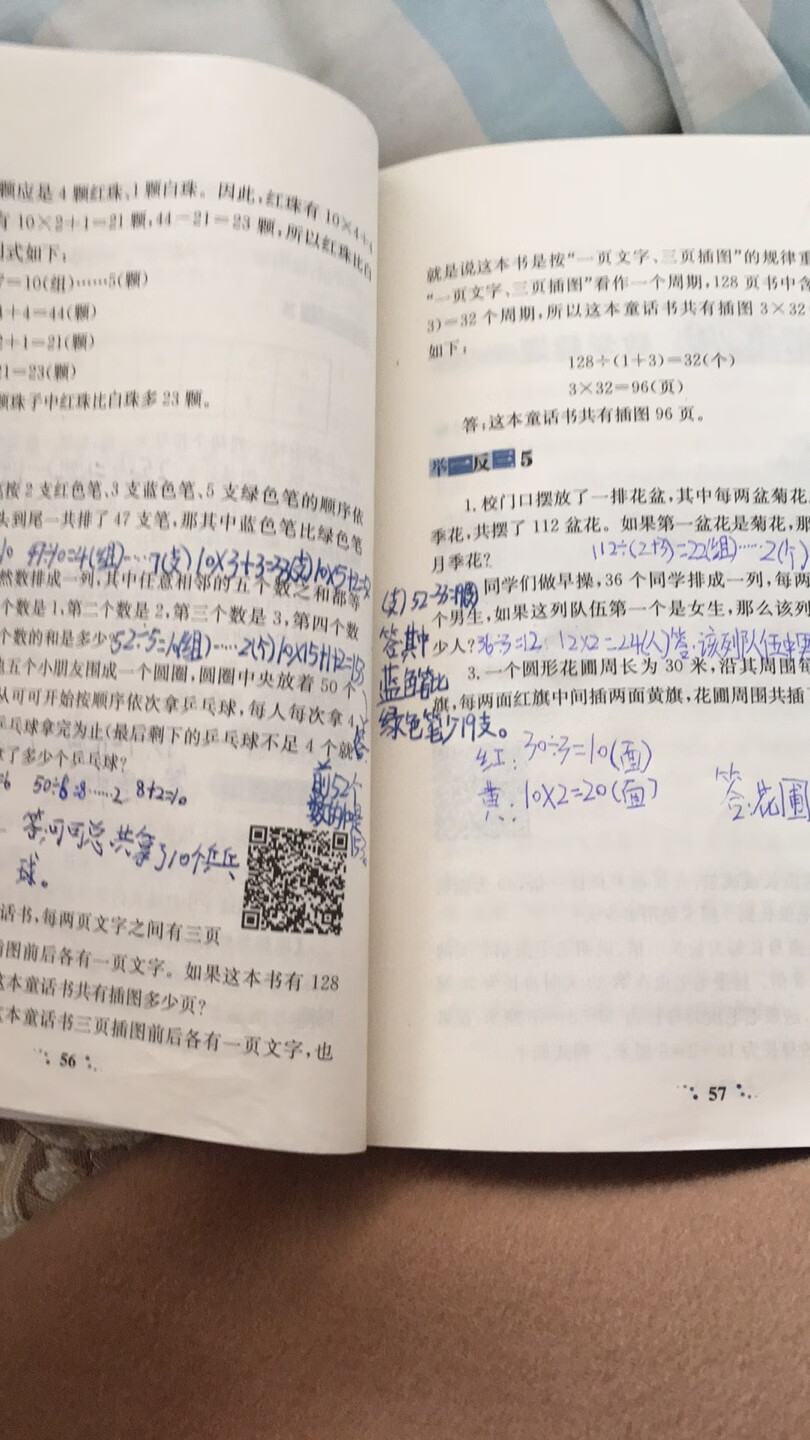 颗应是4颗红珠、1颗白珠。因此,红珠有10×4+4
有10×2+1=21颗,44-21=23颗,所以红珠比白
式如下:
7=10(组)……5(颗)
4+4=44(颗)
2+1=21(颗)
21=23(颗)
颗珠子中红珠比白珠多23颗。
按2支红色笔、3支蓝色笔、5支绿色笔的顺序依
头到尾一共排了47支笔,那其中蓝色笔比绿色笔
47÷10=4(组)……7(支)
然数排成一列,其中任意相邻的五个数之和都等
个数是1,第二个数是2,第三个数是3,第四个数
个数的和是多少?
五个小朋友围成一个圆圈,圆圈中央放着50个
从可可开始按顺序依次拿乒乓球,每人每次拿4
乒乓球拿完为止(最后剩下的乒乓球不足4个就
拿了多少个乒乓球?
8……2 8+2=10
答:可可总共拿了10个乒乓
球。
前52个
数的和是
话书,每两页文字之间有三页
插图前后各有一页文字。如果这本书有128
这本童话书共有插图多少页?
这本童话书三页插图前后各有一页文字,也
56
就是说这本书是按“一页文字、三页插图”的规律重
“一页文字、三页插图”看作一个周期,128页书中含
3)=32个周期,所以这本童话书共有插图3×32
如下:
128÷(1+3)=32(个)
3×32=96(页)
答:这本童话书共有插图96页。
举一反三5
1.校门口摆放了一排花盆,其中每两盆菊花
季花,共摆了112盆花。如果第一盆花是菊花,那
月季花? 112÷(2+3)=22(组)……2(个)
同学们做早操,36个同学排成一列,每两
个男生,如果这列队伍第一个是女生,那么该列
少人? 36÷3=12 12×2=24(人) 答:该列队伍
3.一个圆形花圃周长为30米,沿其周围每
旗,每两面红旗中间插两面黄旗,花圃周围共插
(支)
答:其中
蓝色笔比
绿色笔少19支。
红:30÷3=10(面)
黄:10×2=20(面)
答:花圃
57